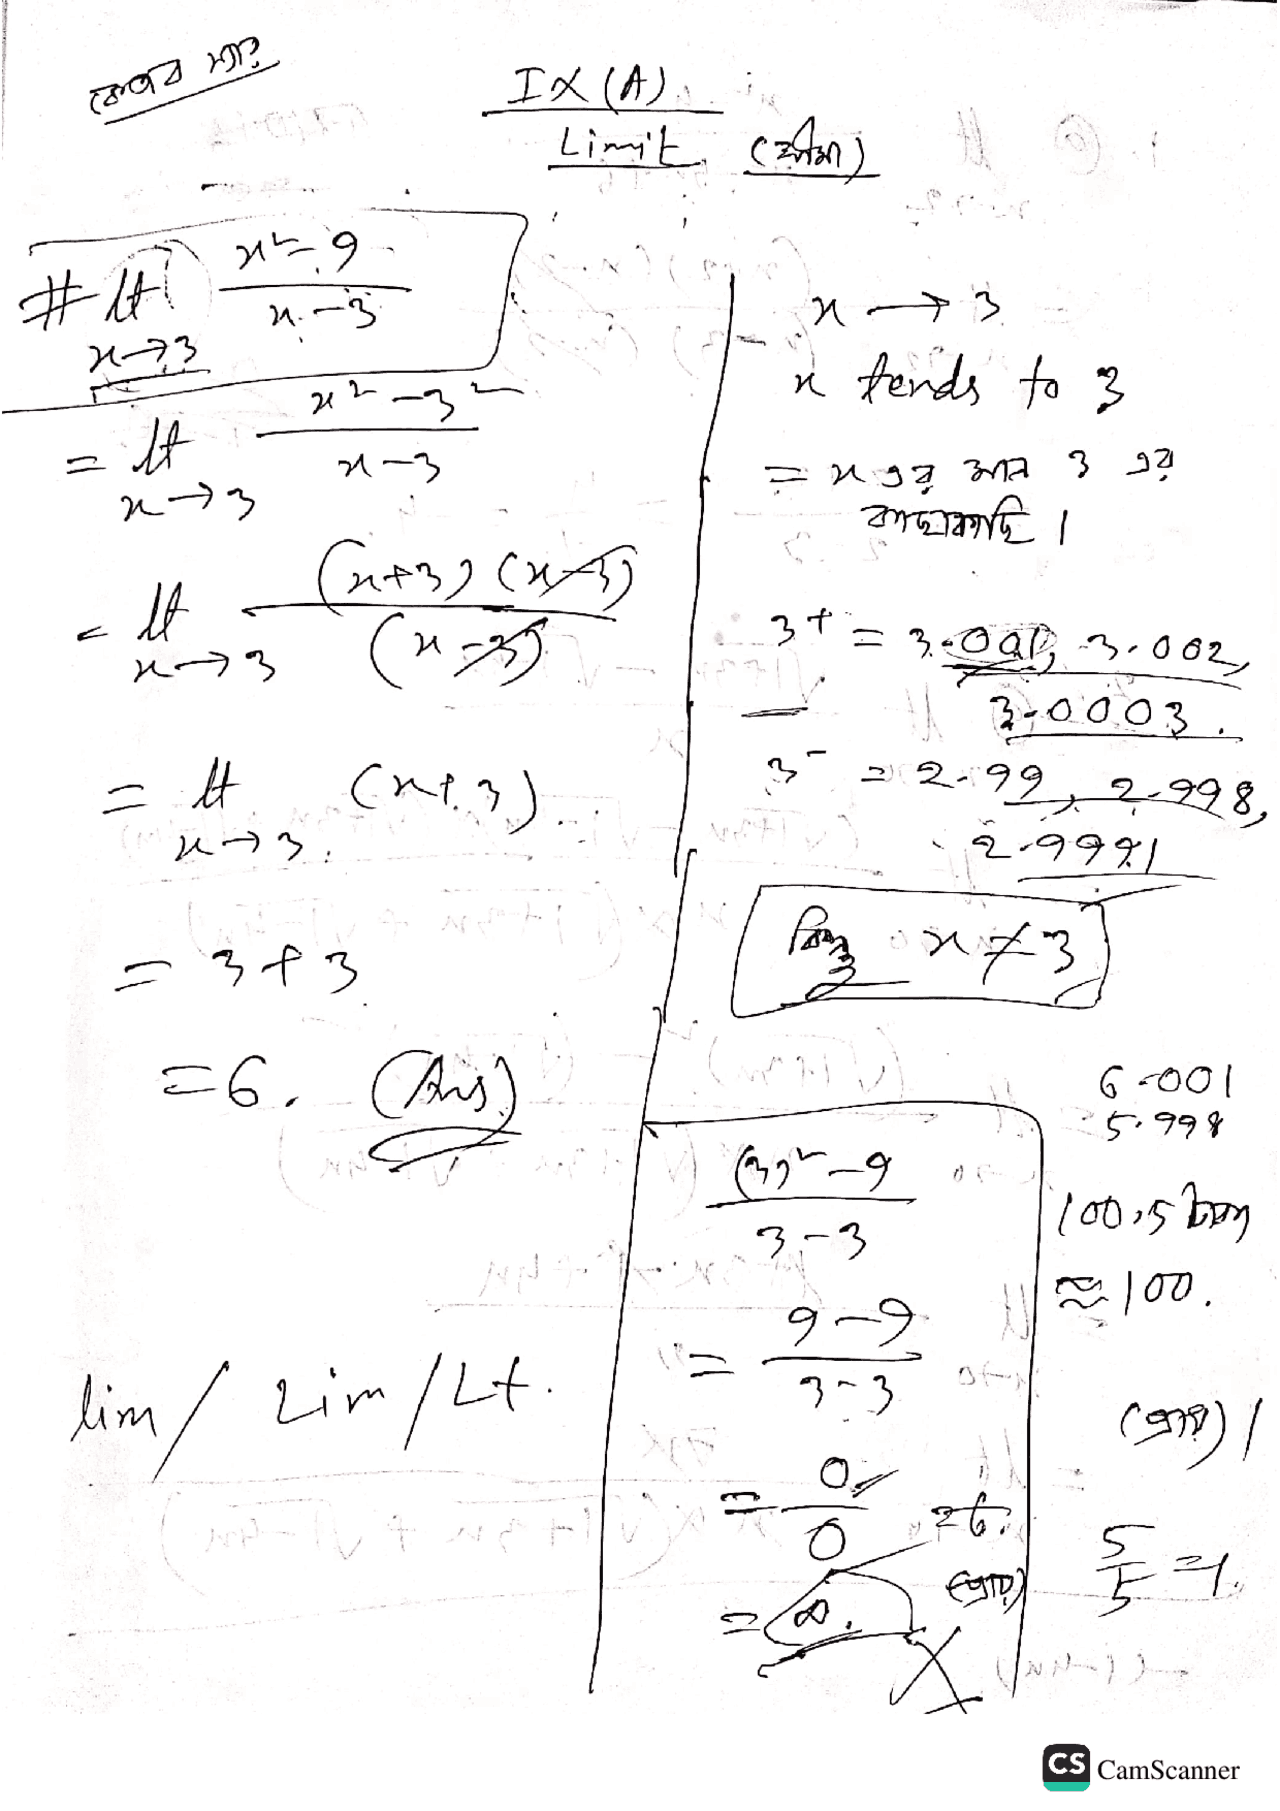 স্যার
IX (A)
Limit (সীমা)
# lt x² - 9 / x - 3
x→3
= lt x² - 3² / x - 3
x→3
= lt (x+3) (x-3) / (x-3)
x→3
= lt (x+3).
x→3.
= 3+3
= 6. (Ans)
lim / Lim / Lt.
x → 3
x tends to 3
= x এর মান 3 এর
কাছাকাছি ।
3+ = 3.001, 3.002,
3.0003.
3- = 2.99, 2.998,
2.9991
কিন্তু x ≠ 3
(3)² - 9 / 3 - 3
= 9 - 9 / 3 - 3
= 0 / 0 = 6.
(প্রায়)
= ∞.
6.001
5.998
100.5
≈ 100.
(প্রায়) ।
5/5 = 1.
CS CamScanner